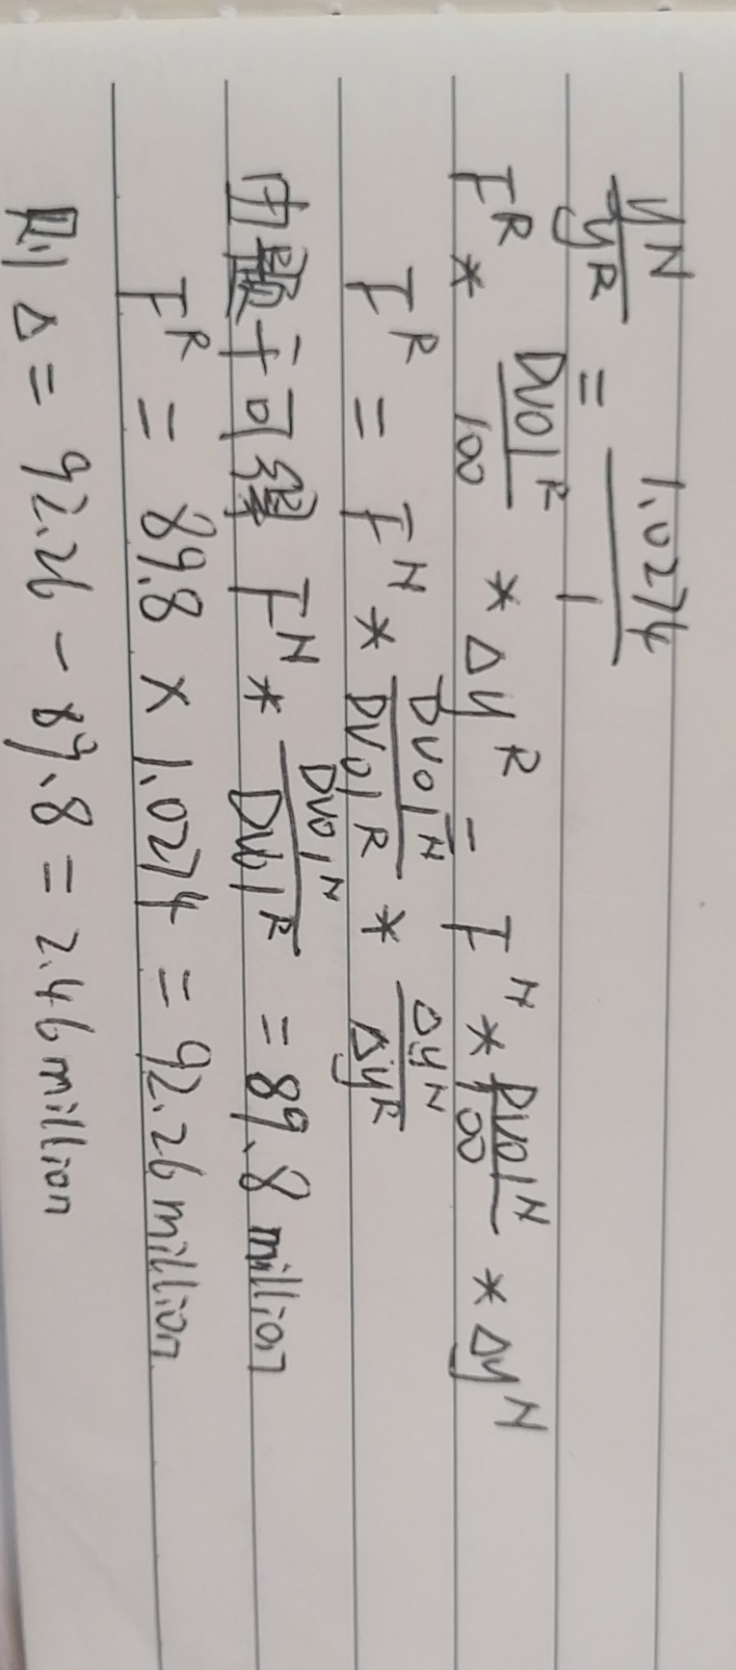 y^N/y^R = 1.0274/1
F^R * DV01^R/100 * Δy^R = F^N * DV01^N/100 * Δy^N
F^R = F^N * DV01^N/DV01^R * Δy^N/Δy^R
由题干可得 F^N * DV01^N/DV01^R = 89.8 million
F^R = 89.8 × 1.0274 = 92.26 million
则 Δ = 92.26 - 89.8 = 2.46 million